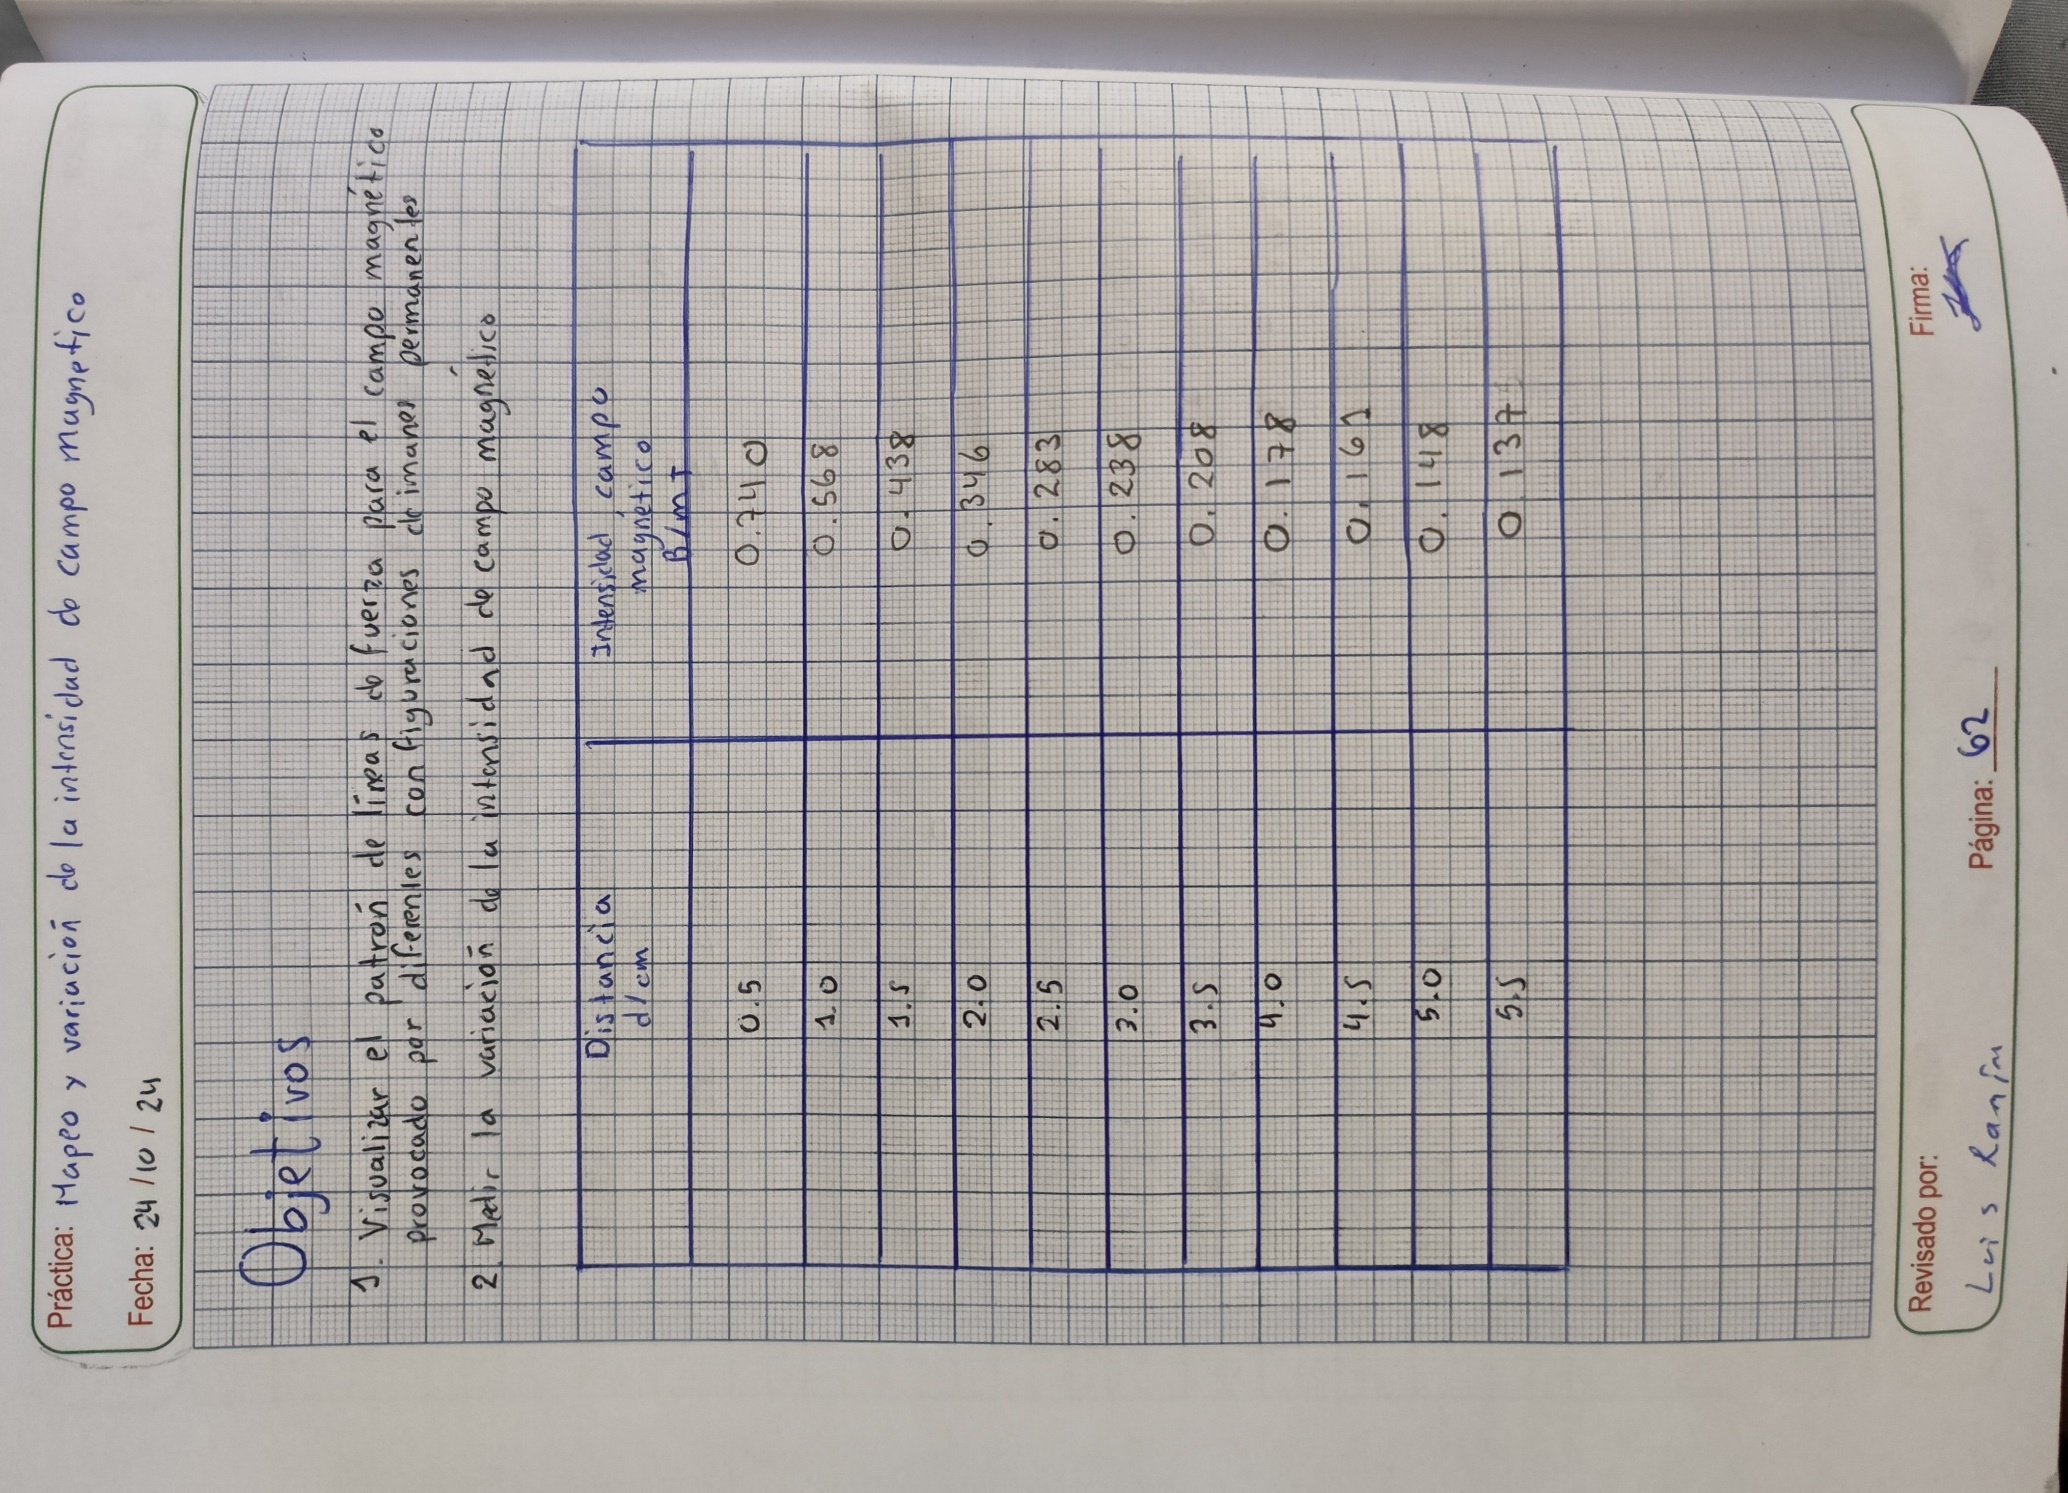 Práctica: Mapeo y variación de la intensidad de campo magnetico
Fecha: 24/10/24
Objetivos
1. Visualizar el patrón de líneas de fuerza para el campo magnético
provocado por diferentes configuraciones de imanes permanentes
2. Medir la variación de la intensidad de campo magnético
Distancia d/cm Intensidad campo magnético B/mT
0.5 0.740
1.0 0.568
1.5 0.438
2.0 0.346
2.5 0.283
3.0 0.238
3.5 0.208
4.0 0.178
4.5 0.161
5.0 0.148
5.5 0.137
Revisado por: Página: 62 Firma:
Luis